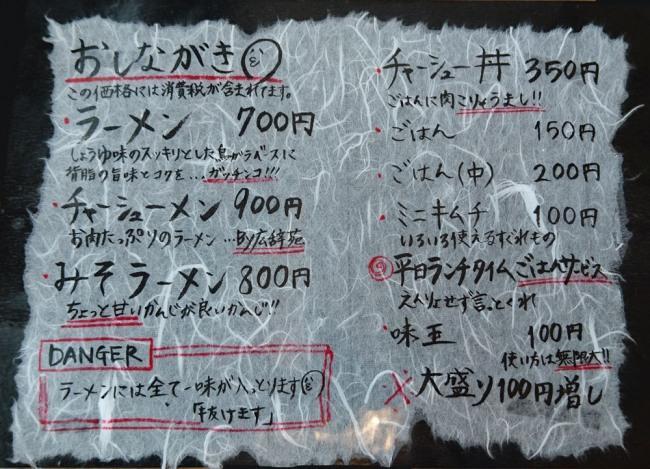 おしながき
この価格には消費税が含まれてます。
・ラーメン 700円
しょうゆ味のスッキリとした鳥がらベースに
背脂の旨味とコクを…ガッチンコ!!!
・チャーシューメン 900円
お肉たっぷりのラーメン…By広辞苑
・みそラーメン 800円
ちょっと甘いかんじが良いかんじ!!
DANGER
ラーメンには全て一味が入っとります
「抜けます」
・チャーシュー丼 350円
ごはんに肉こりゃうまし!!
・ごはん 150円
・ごはん(中) 200円
・ミニキムチ 100円
いろいろ使えるすぐれもの
平日ランチタイムごはんサービス
えんりょせず言っとくれ
・味玉 100円
使い方は無限大!!
※大盛り100円増し